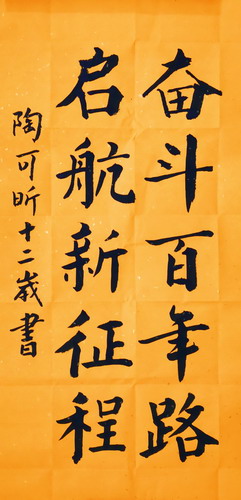 奋斗百年路
启航新征程
陶可昕十二岁书